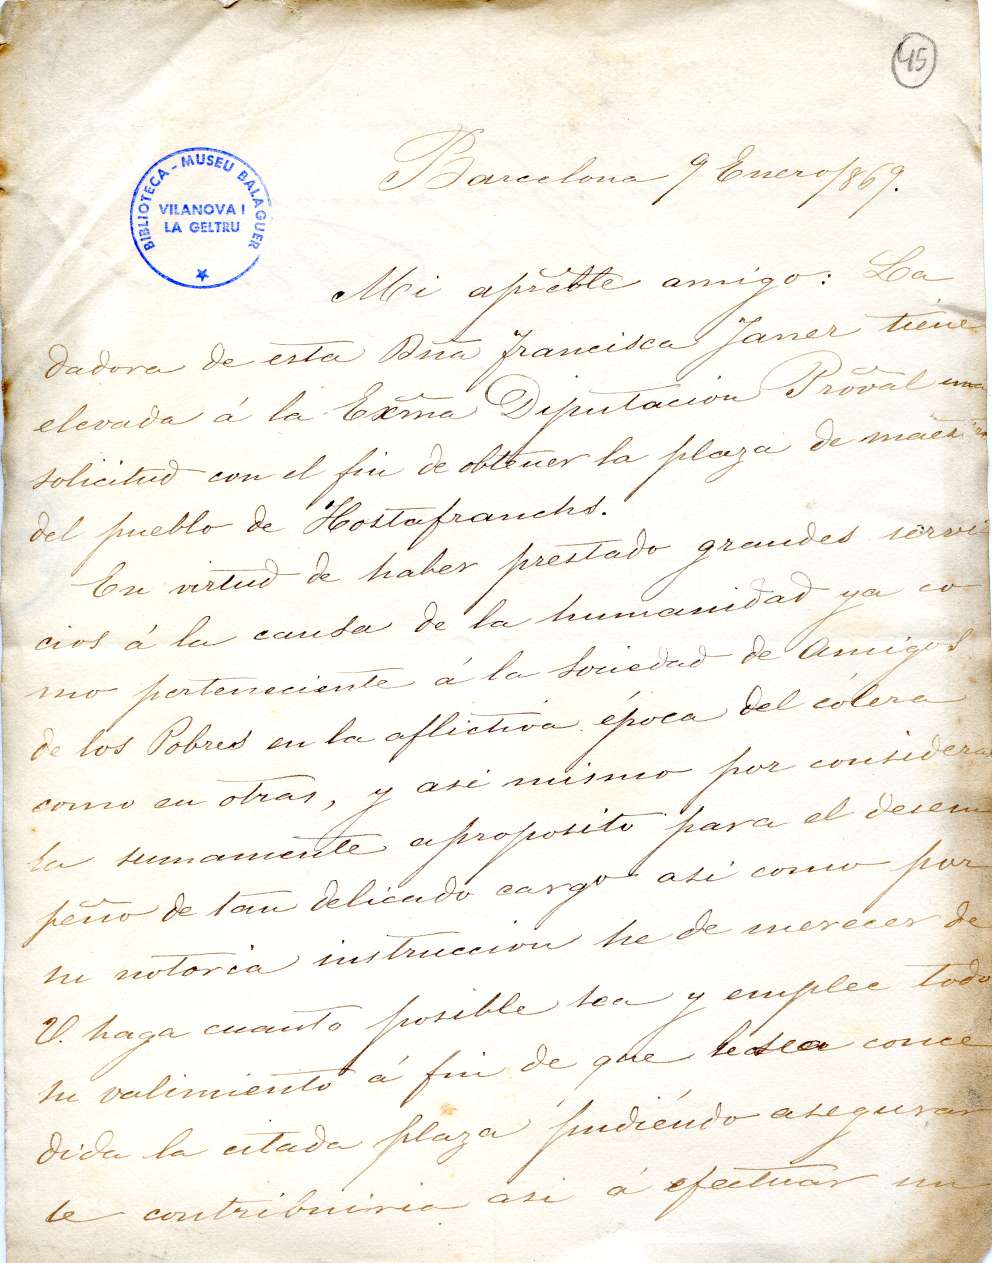 45
BIBLIOTECA - MUSEU BALAGUER
VILANOVA I
LA GELTRU
Barcelona 9 Enero/869.
Mi apreble amigo: La
dadora de esta Dña Francisca Janer tiene
elevada á la Exma Diputacion Proval una
solicitud con el fin de obtener la plaza de maestra
del pueblo de Hostafranchs.
En virtud de haber prestado grandes servi
cios á la causa de la humanidad ya co
mo perteneciente á la Sociedad de Amigos
de los Pobres en la aflictiva época del cólera
como en otras, y asi mismo por considerar
la sumamente aproposito para el desem
peño de tan delicado cargo asi como por
su notoria instruccion he de merecer de
V. haga cuanto posible sea y emplee todo
su valimiento á fin de que le sea conce
dida la citada plaza pudiéndo asegurar
le contribuiria asi á efectuar un